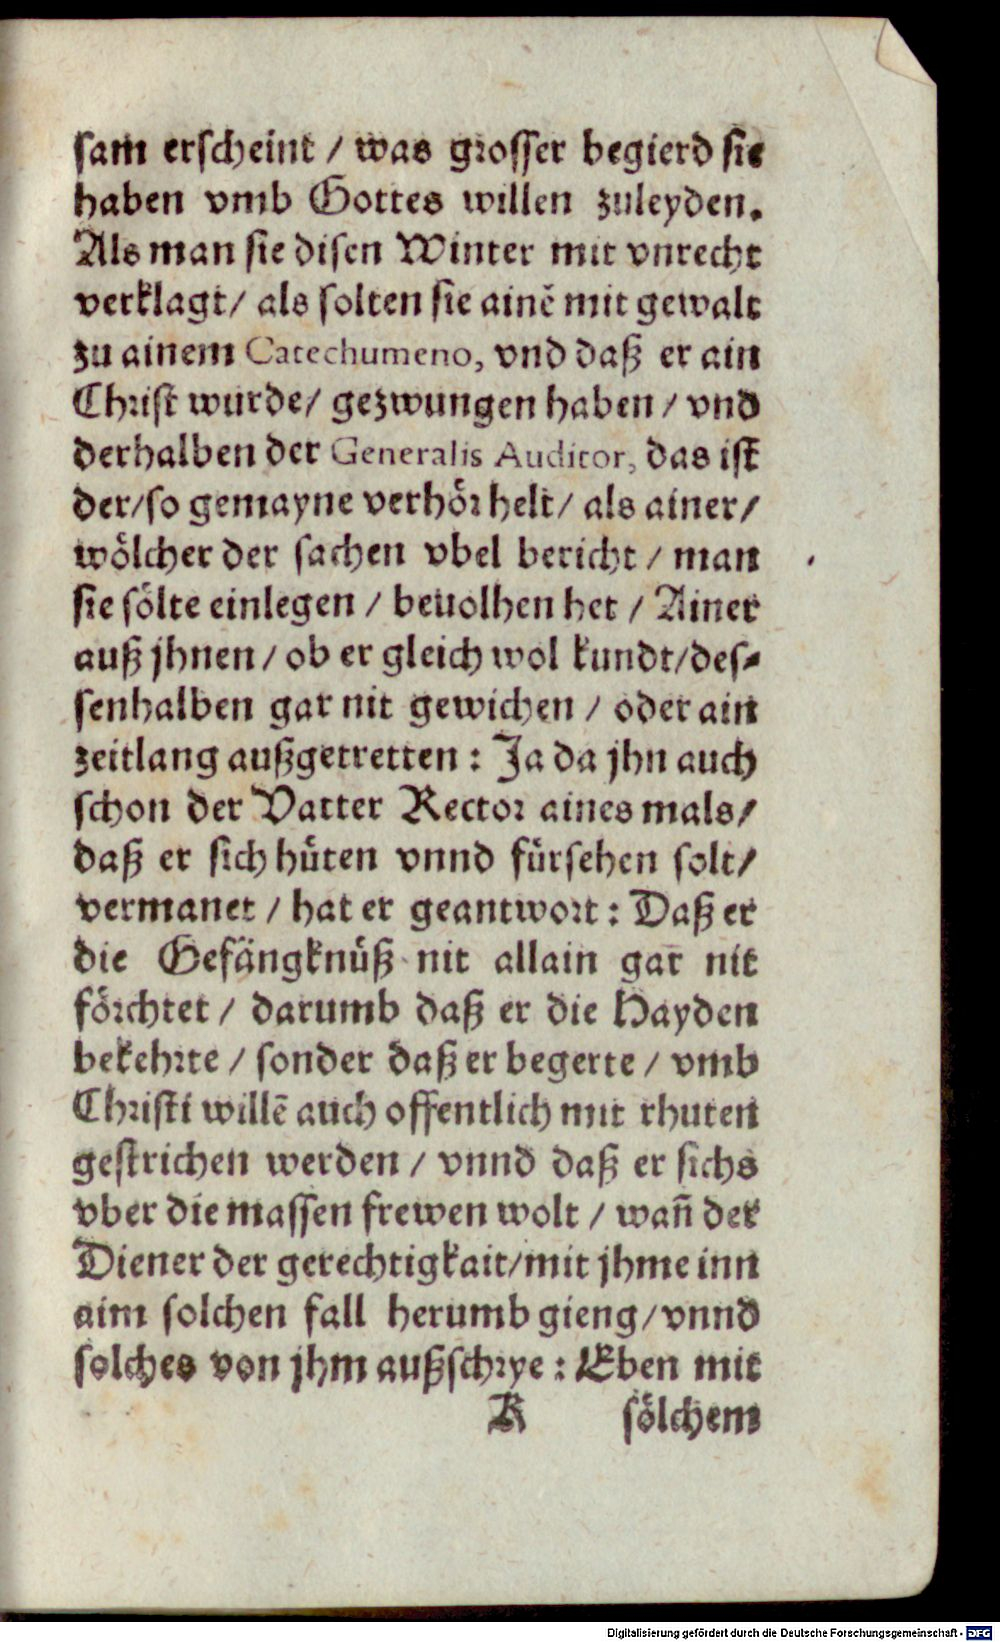 sam erscheint / was grosser begierd sie
haben vmb Gottes willen zuleyden.
Als man sie disen Winter mit vnrecht
verklagt/ als solten sie ainē mit gewalt
zu ainem Catechumeno, vnd daß er ain
Christ wurde/ gezwungen haben / vnd
derhalben der Generalis Auditor, das ist
der/so gemayne verhör helt/ als ainer/
wölcher der sachen vbel bericht / man
sie sölte einlegen / beuolhen het / Ainer
auß jhnen / ob er gleich wol kundt/des-
senhalben gar nit gewichen / oder ain
zeitlang außgetretten : Ja da jhn auch
schon der Vatter Rector aines mals/
daß er sich hüten vnnd fürsehen solt/
vermanet / hat er geantwort : Daß er
die Gefängknüß nit allain gar nit
förchtet / darumb daß er die Hayden
bekehrte / sonder daß er begerte / vmb
Christi willē auch offentlich mit rhuten
gestrichen werden / vnnd daß er sichs
vber die massen frewen wolt / wañ der
Diener der gerechtigkait/mit jhme inn
aim solchen fall herumb gieng/vnnd
solches von jhm außschrye : Eben mit
K sölchem
Digitalisierung gefördert durch die Deutsche Forschungsgemeinschaft - DFG